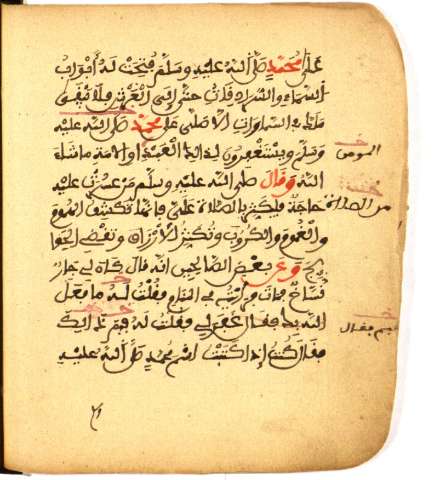 على محمد صلى الله عليه وسلم فتحت له أبواب
السماء والسرادقات حتى إلى العرش فلا يبقى
ملك في السماوات إلا صلى على محمد صلى الله عليه
وسلم ويستغفرون لذلك العبد أو الأمة ما شاء
الله وقال صلى الله عليه وسلم من عسرت عليه
حاجة فليكثر بالصلاة علي فإنها تكشف الهموم
والغموم والكروب وتكثر الأرزاق وتقضي الحوا
يج وعن بعض الصالحين انه قال كان لي جار
نساخ فمات فرأيته في المنام فقلت له ما فعل
الله بك فقال غفر لي فقلت له فبم ذالك
فقال كنت إذا كتبت اسم محمد صلى الله عليه
المومن
من الصلاة
فبم فقال